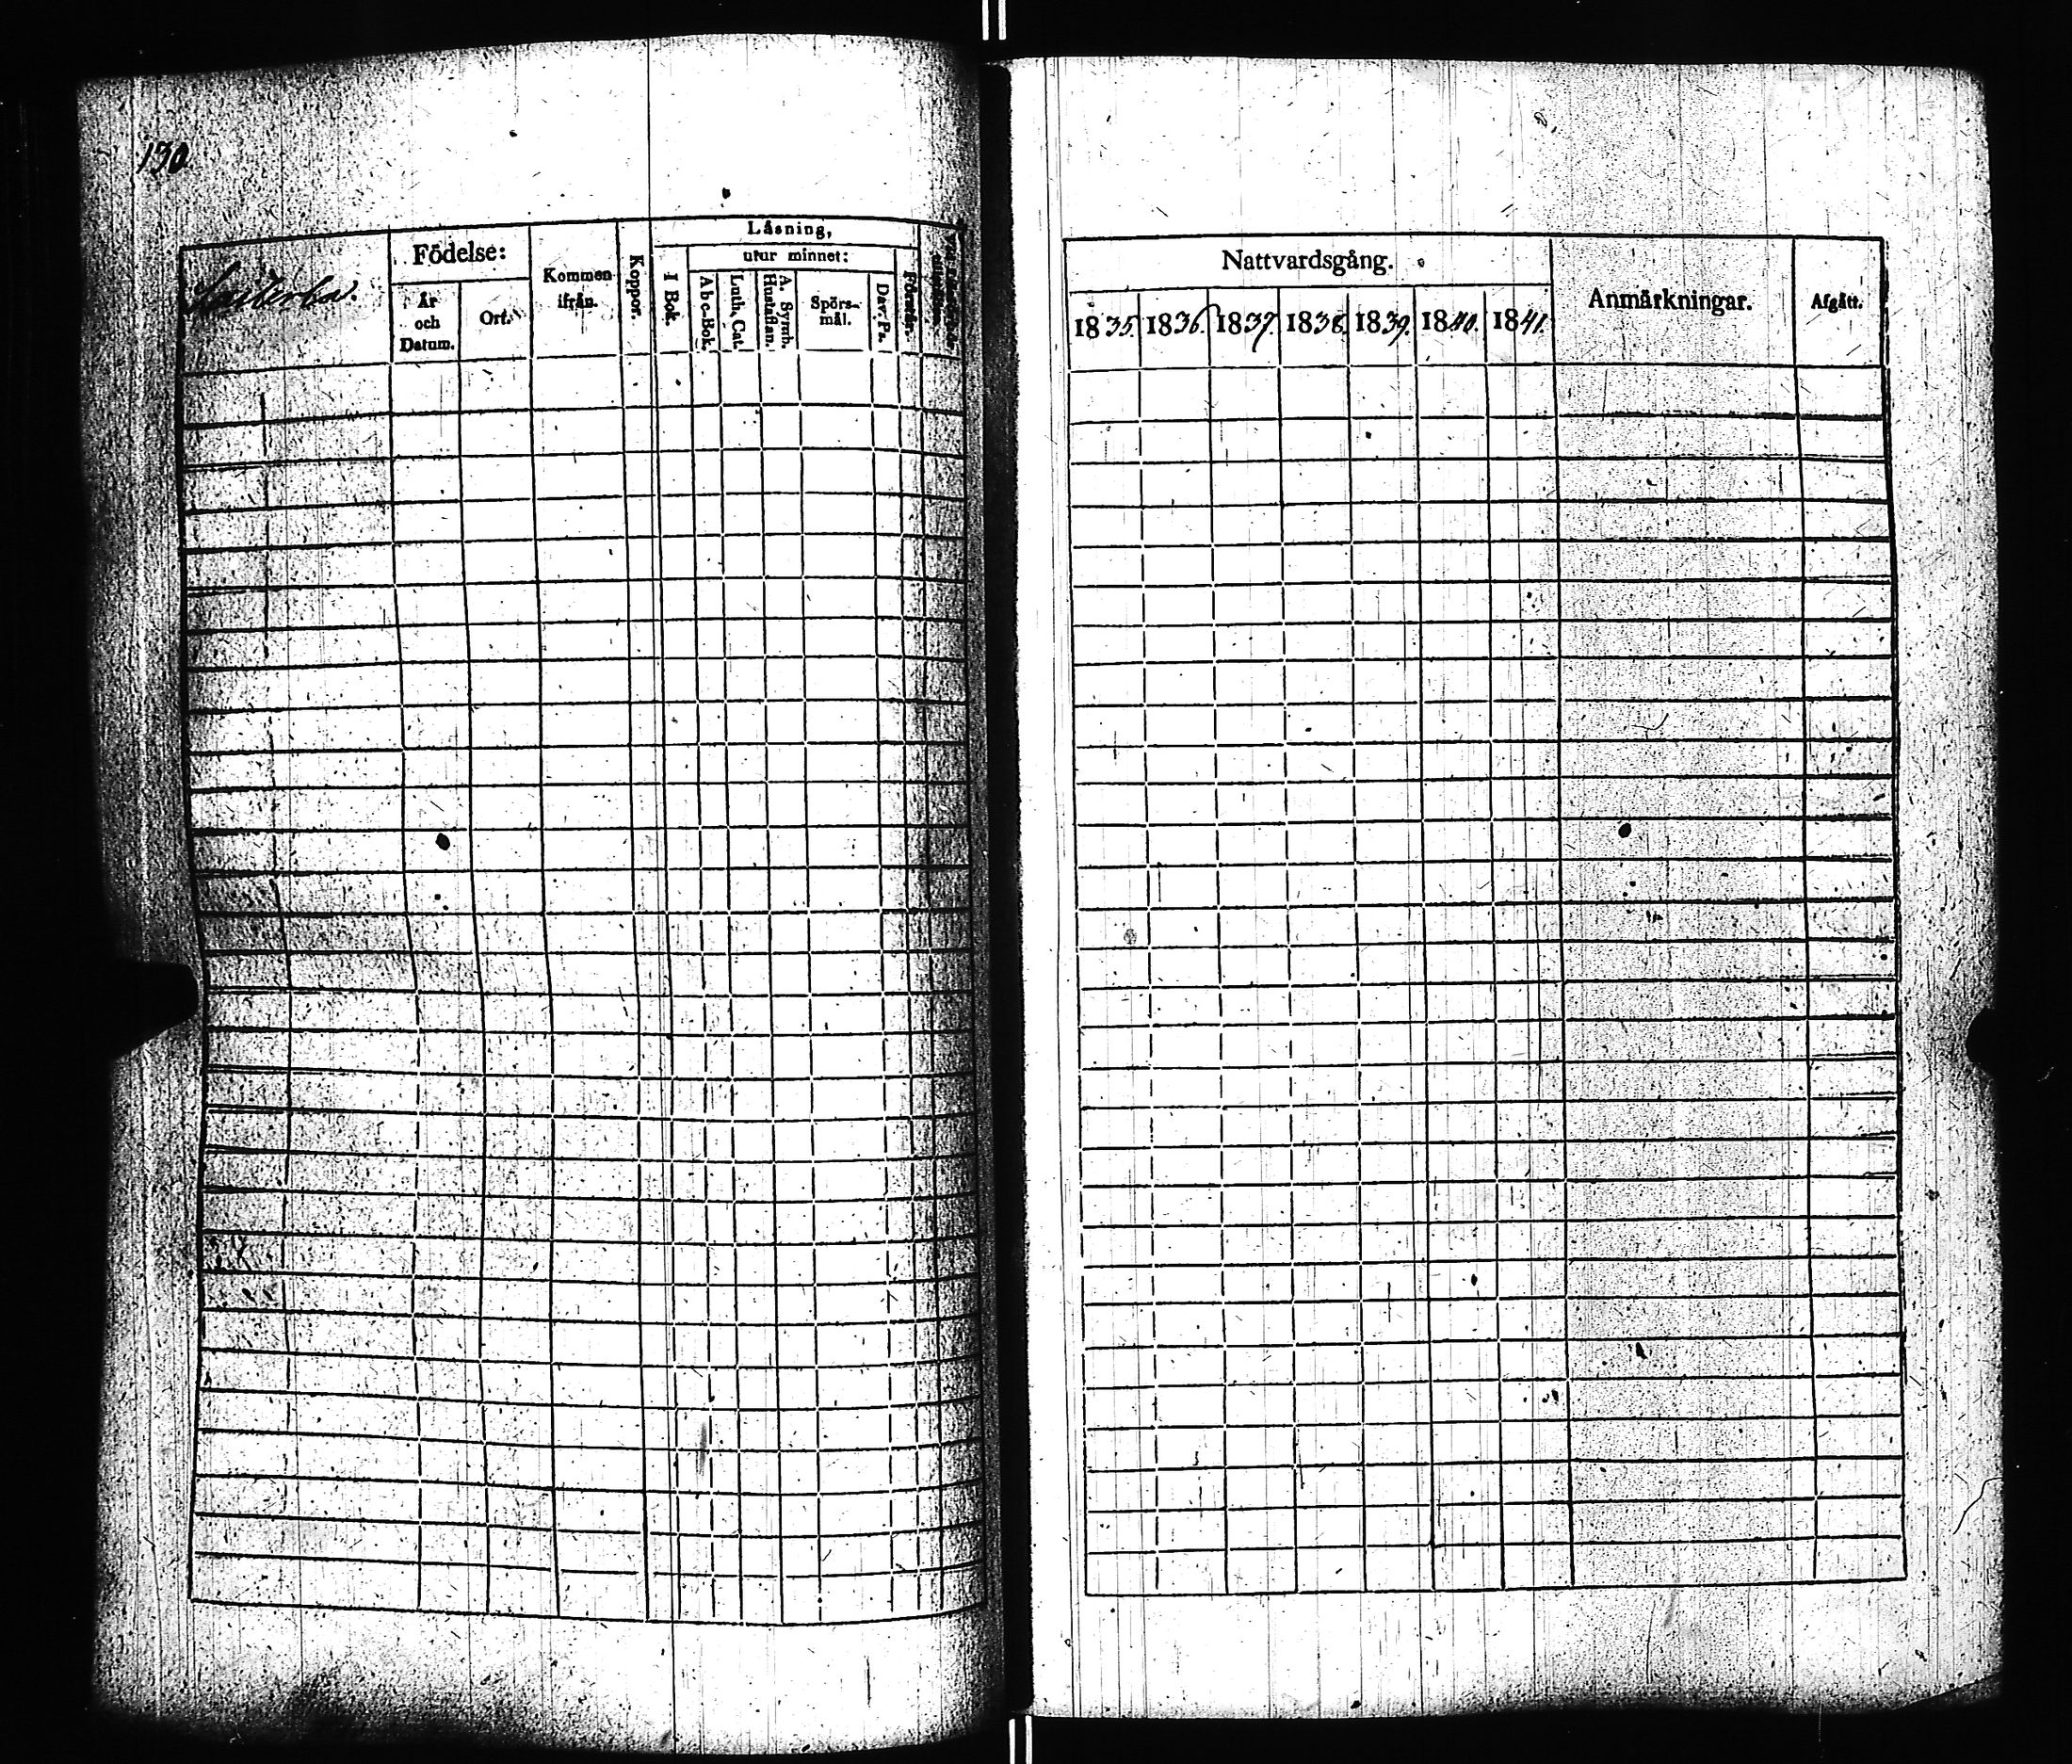 130
Födelse:
År och Datum.
Ort.
Kommen ifrån.
Koppor.
Läsning,
I Bok.
utur minnet:
Abc-Bok.
Luth. Cat.
A. Symb. Hustaflan.
Spörsmål.
Dav. Ps.
Förstår.
Nattvardsgång.
1835.
1836.
1837.
1838.
1839.
1840.
1841.
Anmärkningar.
Afgått.